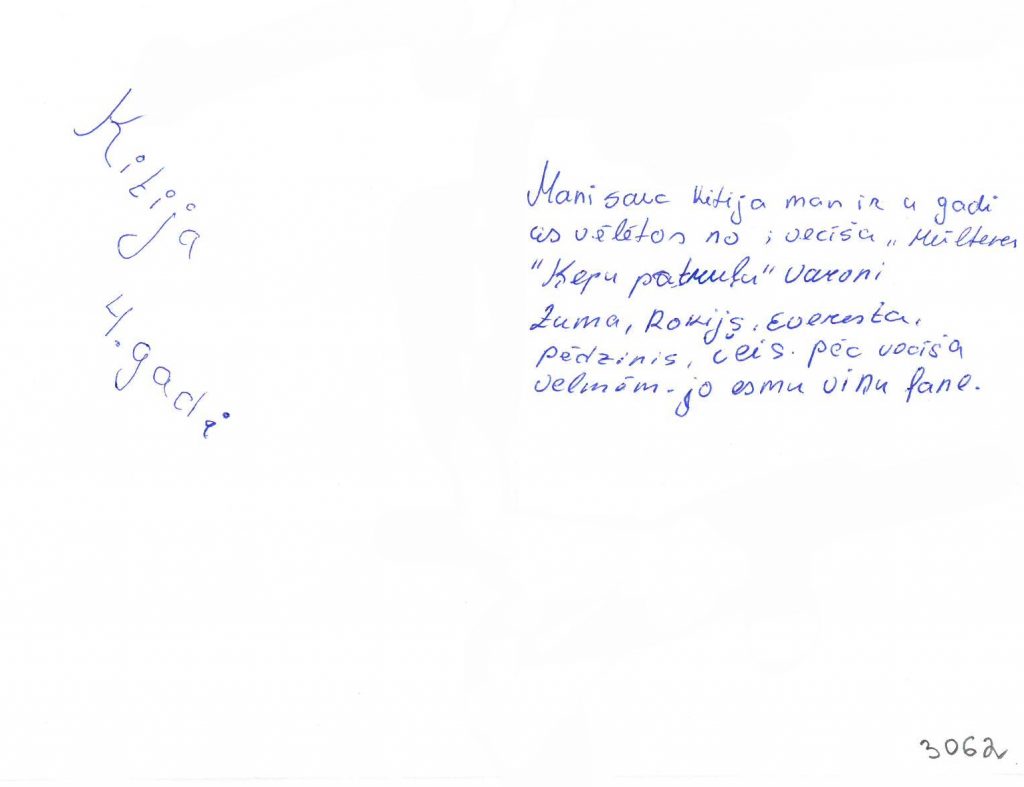 Kitija
4. gadi
Mani sauc Kitija man ir 4 gadi
es vēlētos no ; vecīša „ Mūlteres
"Ķepu patruļu" varoni
Zuma, Rokijs, Everesta,
Pēdzinis, Čeis. pēc vecīša
velmēm - jo esmu viņu fane.
3062